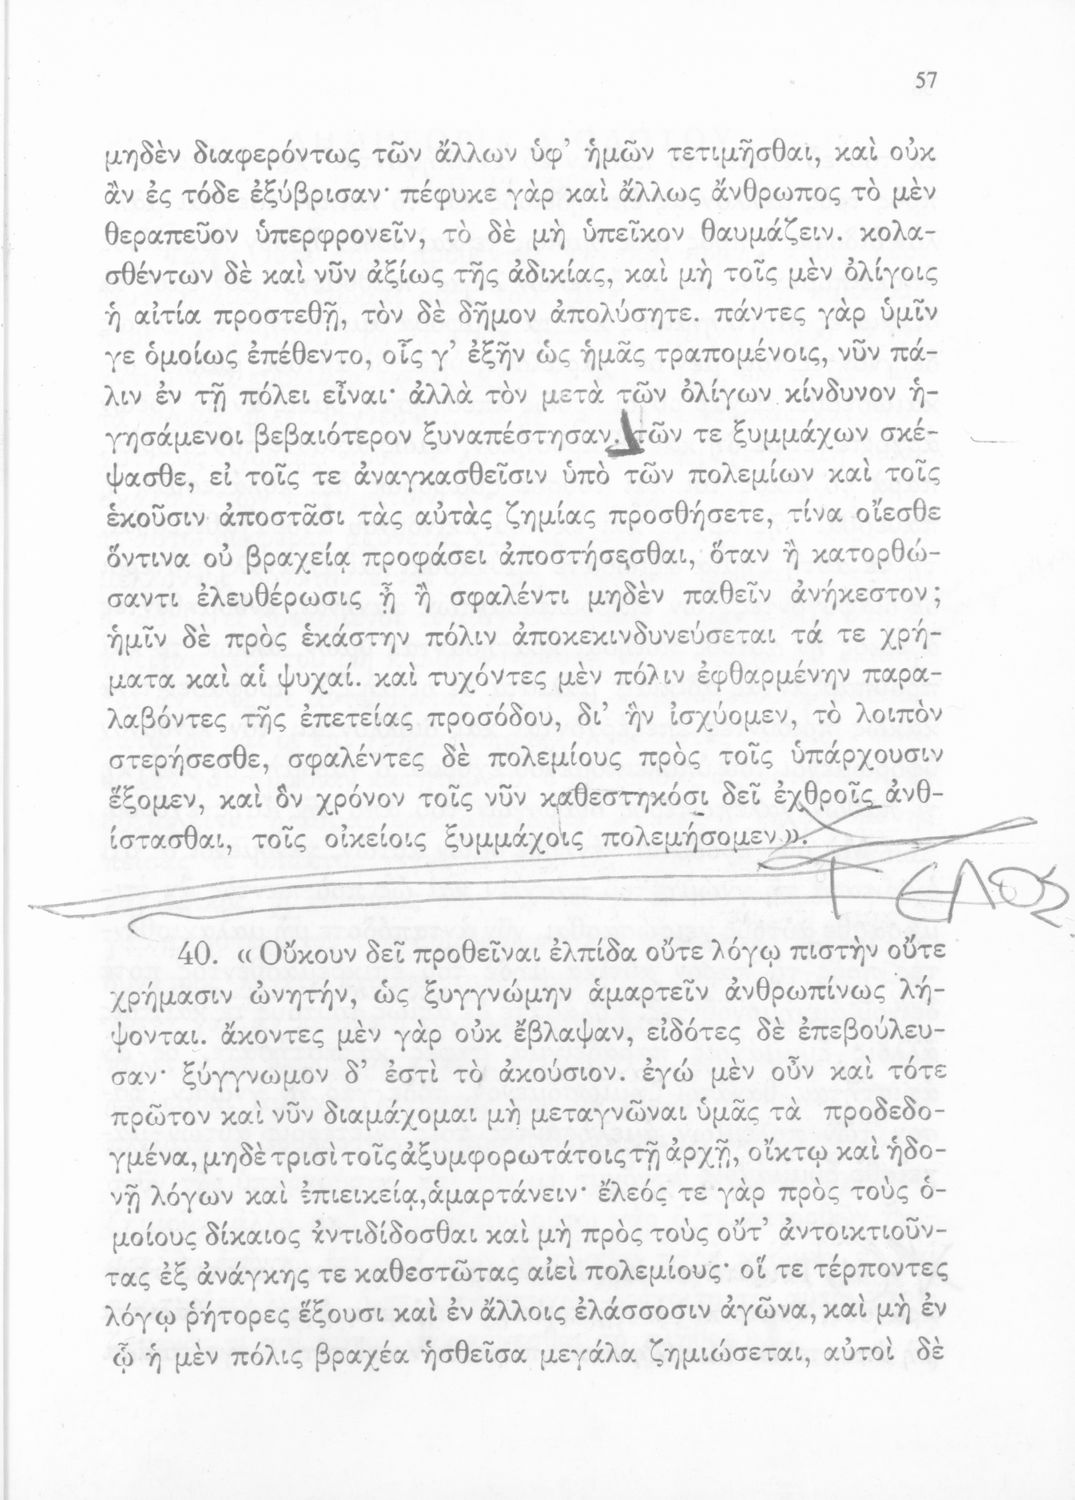 57
μηδὲν διαφερόντως τῶν ἄλλων ὑφ’ ἡμῶν τετιμῆσθαι, καὶ οὐκ
ἂν ἐς τόδε ἐξύβρισαν· πέφυκε γὰρ καὶ ἄλλως ἄνθρωπος τὸ μὲν
θεραπεῦον ὑπερφρονεῖν, τὸ δὲ μὴ ὑπεῖκον θαυμάζειν. κολα-
σθέντων δὲ καὶ νῦν ἀξίως τῆς ἀδικίας, καὶ μὴ τοῖς μὲν ὀλίγοις
ἡ αἰτία προστεθῇ, τὸν δὲ δῆμον ἀπολύσητε. πάντες γὰρ ὑμῖν
γε ὁμοίως ἐπέθεντο, οἷς γ’ ἐξῆν ὡς ἡμᾶς τραπομένοις, νῦν πά-
λιν ἐν τῇ πόλει εἶναι· ἀλλὰ τὸν μετὰ τῶν ὀλίγων κίνδυνον ἡ-
γησάμενοι βεβαιότερον ξυναπέστησαν. τῶν τε ξυμμάχων σκέ-
ψασθε, εἰ τοῖς τε ἀναγκασθεῖσιν ὑπὸ τῶν πολεμίων καὶ τοῖς
ἑκοῦσιν ἀποστᾶσι τὰς αὐτὰς ζημίας προσθήσετε, τίνα οἴεσθε
ὅντινα οὐ βραχείᾳ προφάσει ἀποστήσεσθαι, ὅταν ἢ κατορθώ-
σαντι ἐλευθέρωσις ᾖ ἢ σφαλέντι μηδὲν παθεῖν ἀνήκεστον;
ἡμῖν δὲ πρὸς ἑκάστην πόλιν ἀποκεκινδυνεύσεται τά τε χρή-
ματα καὶ αἱ ψυχαί. καὶ τυχόντες μὲν πόλιν ἐφθαρμένην παρα-
λαβόντες τῆς ἐπετείας προσόδου, δι’ ἣν ἰσχύομεν, τὸ λοιπὸν
στερήσεσθε, σφαλέντες δὲ πολεμίους πρὸς τοῖς ὑπάρχουσιν
ἕξομεν, καὶ ὃν χρόνον τοῖς νῦν καθεστηκόσι δεῖ ἐχθροῖς ἀνθ-
ίστασθαι, τοῖς οἰκείοις ξυμμάχοις πολεμήσομεν».
ΤΕΛΟΣ
40. «Οὔκουν δεῖ προθεῖναι ἐλπίδα οὔτε λόγῳ πιστὴν οὔτε
χρήμασιν ὠνητήν, ὡς ξυγγνώμην ἁμαρτεῖν ἀνθρωπίνως λή-
ψονται. ἄκοντες μὲν γὰρ οὐκ ἔβλαψαν, εἰδότες δὲ ἐπεβούλευ-
σαν· ξύγγνωμον δ’ ἐστὶ τὸ ἀκούσιον. ἐγώ μὲν οὖν καὶ τότε
πρῶτον καὶ νῦν διαμάχομαι μὴ μεταγνῶναι ὑμᾶς τὰ προδεδο-
γμένα, μηδὲ τρισὶ τοῖς ἀξυμφορωτάτοις τῇ ἀρχῇ, οἴκτῳ καὶ ἡδο-
νῇ λόγων καὶ ἐπιεικείᾳ, ἁμαρτάνειν· ἔλεός τε γὰρ πρὸς τοὺς ὁ-
μοίους δίκαιος ἀντιδίδοσθαι καὶ μὴ πρὸς τοὺς οὔτ’ ἀντοικτιοῦν-
τας ἐξ ἀνάγκης τε καθεστῶτας αἰεὶ πολεμίους· οἵ τε τέρποντες
λόγῳ ῥήτορες ἕξουσι καὶ ἐν ἄλλοις ἐλάσσοσιν ἀγῶνα, καὶ μὴ ἐν
ᾧ ἡ μὲν πόλις βραχέα ἡσθεῖσα μεγάλα ζημιώσεται, αὐτοὶ δὲ